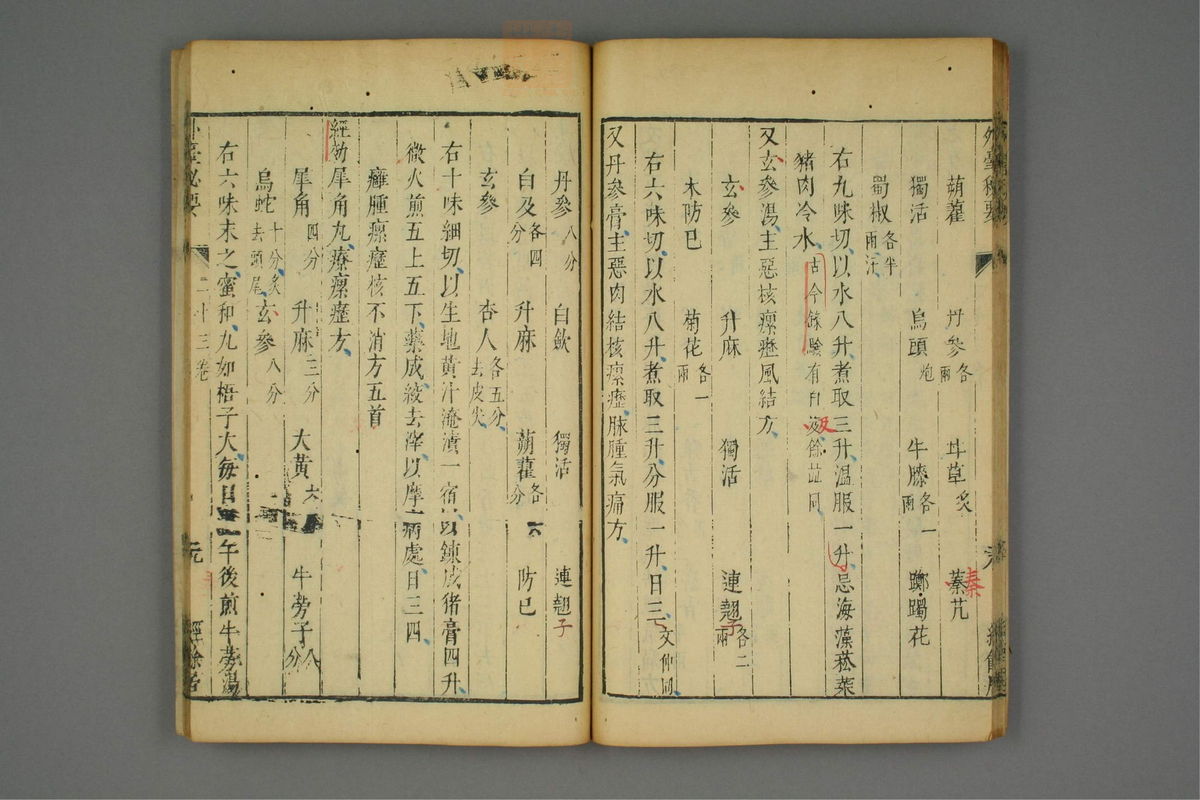 外臺秘要
蒴藋 丹參各兩 甘草炙 蓁艽 秦
獨活 烏頭炮 牛膝各一兩 躑躅花
蜀椒各半兩汗
右九味切以水八升煮取三升溫服一升忌海藻菘菜
豬肉冷水古今錄驗有白及餘並同
又玄參湯主惡核瘰癧風結方
玄參 升麻 獨活 連翹子各二兩
木防巳 菊花各一兩
右六味切以水八升煮取三升分服一升日三文仲同
又丹參膏主惡肉結核瘰癧脉腫氣痛方
丹參八分 白歛 獨活 連翹子
白及各四分 升麻 蒴藋各六分 防巳
玄參 杏人各五分去皮尖
右十味細切以生地黃汁淹漬一宿以鍊成猪膏四升
微火煎五上五下藥成綾去滓以摩病處日三四
癰腫瘰癧核不消方五首
經効犀角丸療瘰癧方
犀角四分 升麻三分 大黃六分 牛蒡子八分
烏蛇十分炙去頭尾 玄參八分
右六味末之蜜和丸如梧子大每日午後煎牛蒡湯
外臺秘要 二十三卷 元 經餘居